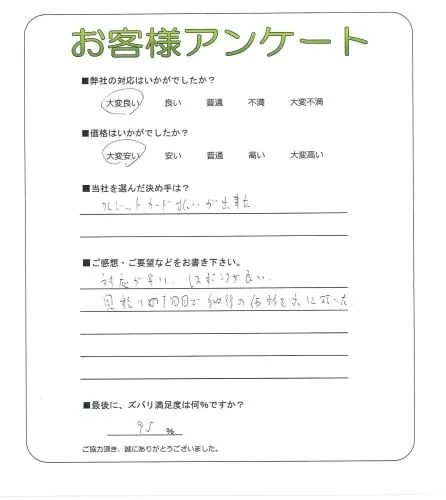 お客様アンケート
■弊社の対応はいかがでしたか？
大変良い 良い 普通 不満 大変不満
■価格はいかがでしたか？
大変安い 安い 普通 高い 大変高い
■当社を選んだ決め手は？
クレジットカード払いが出来た.
■ご感想・ご要望などをお書き下さい。
対応が早い.
見積りが1回目で納得の価格を
■最後に、ズバリ満足度は何%ですか？
95 %
ご協力頂き、誠にありがとうございました。